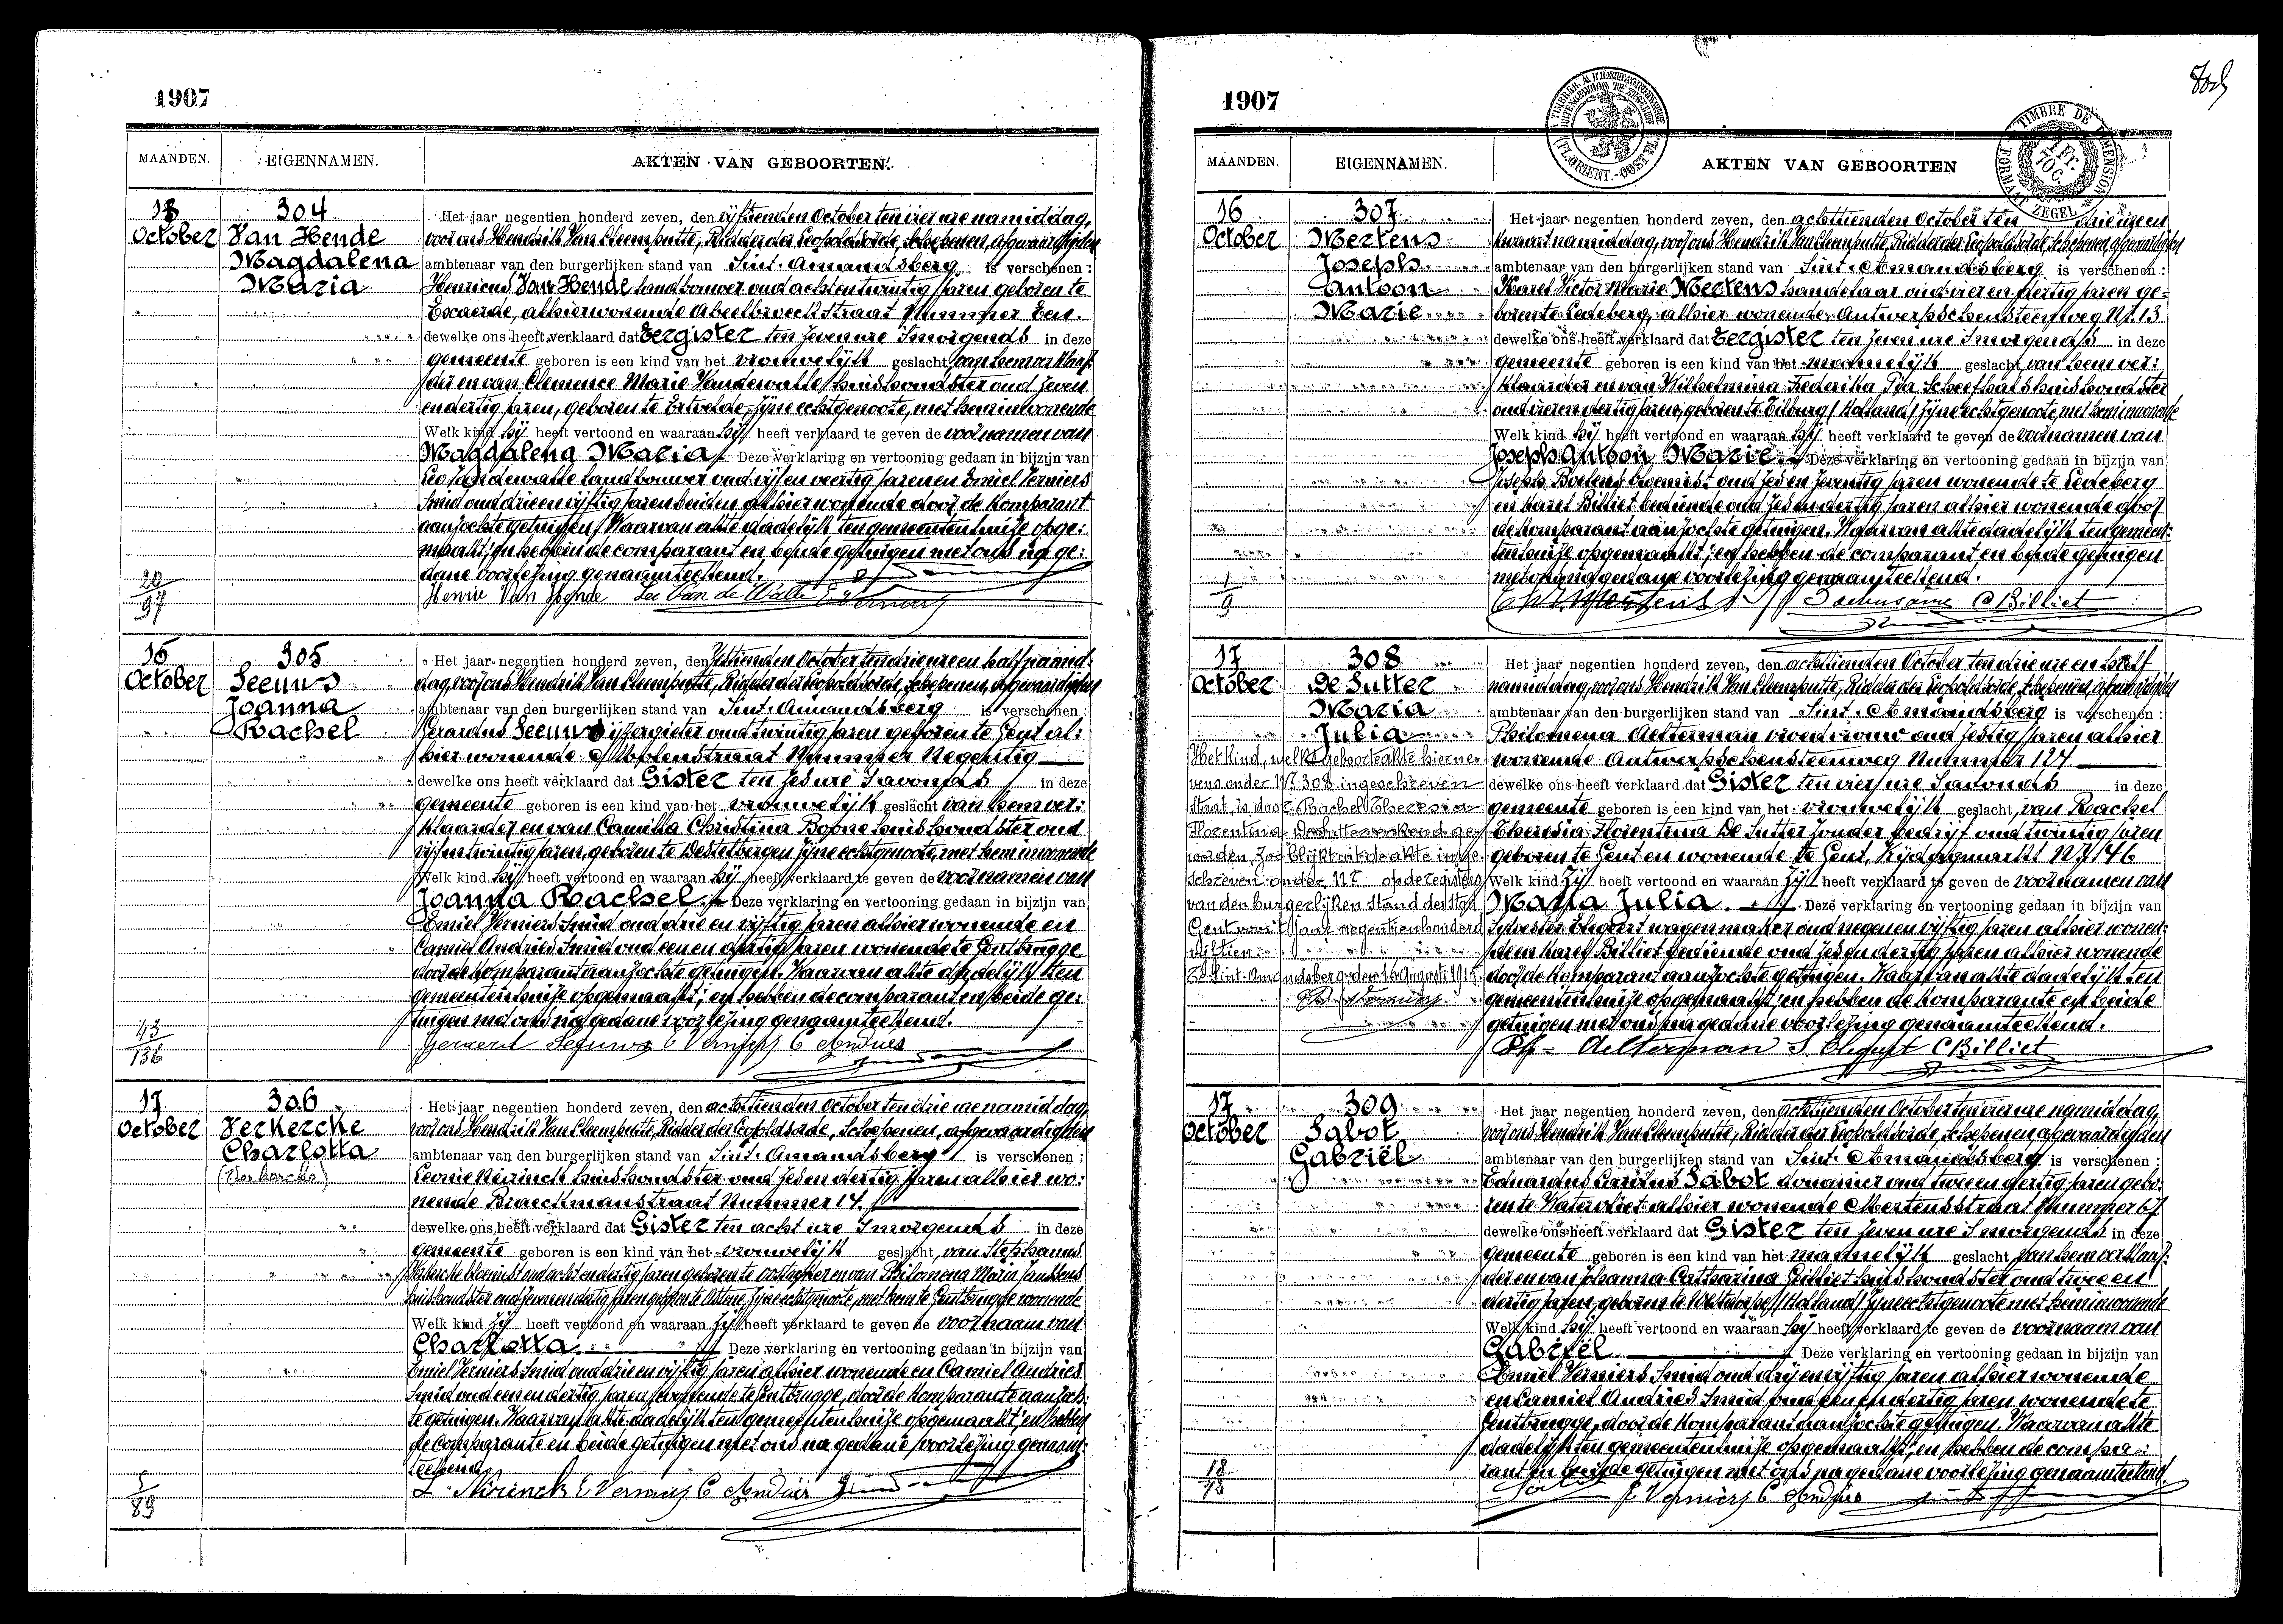 1907
MAANDEN. EIGENNAMEN. AKTEN VAN GEBOORTEN.
13 October
304
Van Hende
Magdalena
Maria
Het jaar negentien honderd zeven, den vijftienden October ten vier ure namiddag,
voor ons Hendrik Van Cleemputte, Ridder der Leopoldsorde, Schepenen, afgevaardigden
ambtenaar van den burgerlijken stand van Sint-Amandsberg is verschenen :
Henricus Van Hende landbouwer oud achtentwintig jaren geboren te
Evergem, alhier wonende straat Nummer Een.
dewelke ons heeft verklaard dat Eergister ten zeven ure 's morgends in deze
gemeente geboren is een kind van het vrouwelijk geslacht van hem verklaar-
der en van Clemence Marie Vandewalle huishoudster oud zeven
endertig jaren, geboren te Ertvelde, zijne echtgenoote, met hem inwonende
Welk kind hij heeft vertoond en waaraan hij heeft verklaard te geven de voornamen van
Magdalena Maria. Deze verklaring en vertooning gedaan in bijzijn van
Leo Vandewalle landbouwer oud vijf en veertig jaren en Emiel Verniers
Smid oud drie en vijftig jaren beiden alhier wonende door de komparant
aanzochte getuigen. Waarvan akte dadelijk ten gemeentenhuize opge-
maakt; en hebben de comparant en beide getuigen met ons na ge-
dane voorlezing genaamteekend.
Henri Van Hende Leo Van de Walle E Verniers
20
97
15 October
305
Seeuws
Joanna
Rachel
Het jaar negentien honderd zeven, den zestienden October ten drie ure en half namid-
dag, voor ons Hendrik Van Cleemputte, Ridder der Leopoldsorde, Schepenen, afgevaardigden
ambtenaar van den burgerlijken stand van Sint-Amandsberg is verschenen :
Gerardus Seeuws ijzergieter oud twintig jaren geboren te Gent al-
hier wonende Molenstraat Nummer Negentig
dewelke ons heeft verklaard dat Gister ten zes ure 's avonds in deze
gemeente geboren is een kind van het vrouwelijk geslacht van hem ver-
klaarder en van Camilla Christina Boone huishoudster oud
vijfentwintig jaren, geboren te Destelbergen zijne echtgenoote, met hem inwonende
Welk kind hij heeft vertoond en waaraan hij heeft verklaard te geven de voornamen van
Joanna Rachel. Deze verklaring en vertooning gedaan in bijzijn van
Emiel Verniers Smid oud drie en vijftig jaren alhier wonende en
Camiel Andries Smid oud een en dertig jaren wonende te Gentbrugge
door de komparant aanzochte getuigen. Waarvan akte dadelijk ten
gemeentenhuize opgemaakt; en hebben de comparant en beide ge-
tuigen met ons na gedane voorlezing genaamteekend.
Gerard Seeuws E Verniers C Andries
43
136
17 October
306
Verkercke
Charlotta
Het jaar negentien honderd zeven, den achttienden October ten drie ure namiddag,
voor ons Hendrik Van Cleemputte, Ridder der Leopoldsorde, Schepenen, afgevaardigden
ambtenaar van den burgerlijken stand van Sint-Amandsberg is verschenen :
Leonie Nirinck huishoudster oud zes en dertig jaren alhier wo-
nende Braeckmanstraat Nummer 14.
dewelke ons heeft verklaard dat Gister ten acht ure 's morgends in deze
gemeente geboren is een kind van het vrouwelijk geslacht, van Stephanus
Verkercke bloemist oud acht en dertig jaren geboren te Oostacker en van Philomena Maria Janssens
huishoudster oud zeven en dertig jaren geboren te Astene, zijne echtgenoote, met hem te Gentbrugge wonende
Welk kind zij heeft vertoond en waaraan zij heeft verklaard te geven de voornaam van
Charlotta. Deze verklaring en vertooning gedaan in bijzijn van
Emiel Verniers Smid oud drie en vijftig jaren alhier wonende en Camiel Andries
Smid oud een en dertig jaren wonende te Gentbrugge, door de komparante aanzoch-
te getuigen. Waarvan akte dadelijk ten gemeentenhuize opgemaakt; en hebben
de Comparante en beide getuigen met ons na gedane voorlezing genaam-
teekend.
L. Nirinck E Verniers C Andries
5
89
1907
TIMBRE DE DIMENSION
1 Fr. 70 C.
FORMAAT ZEGEL
MAANDEN. EIGENNAMEN. AKTEN VAN GEBOORTEN
16 October
307
Mertens
Joseph
Antoon
Marie
Het jaar negentien honderd zeven, den achttienden October ten drie ure en
kwaart namiddag, voor ons Hendrik Van Cleemputte, Ridder der Leopoldsorde, Schepenen, afgevaardigden
ambtenaar van den burgerlijken stand van Sint-Amandsberg is verschenen :
Karel Victor Marie Mertens handelaar oud vier en dertig jaren ge-
boren te Ledeberg, alhier wonende Antwerpschensteenweg Nr. 13
dewelke ons heeft verklaard dat Eergister ten zeven ure 's morgends in deze
gemeente geboren is een kind van het mannelijk geslacht van hem ver-
klaarder en van Wilhelmina Frederika Pia Scheefhals huishoudster
oud vier en dertig jaren, geboren te Tilburg (Holland) zijne echtgenoote, met hem inwonende
Welk kind hij heeft vertoond en waaraan hij heeft verklaard te geven de voornamen van
Joseph Antoon Marie. Deze verklaring en vertooning gedaan in bijzijn van
Joseph Boelens bloemist oud zes en zeventig jaren wonende te Ledeberg
en Karel Billiet bediende oud zes en dertig jaren alhier wonende door
de komparant aanzochte getuigen. Waarvan akte dadelijk ten gemeen-
tenhuize opgemaakt; en hebben de comparant en beide getuigen
met ons na gedane voorlezing genaamteekend.
Mertens C Billiet
1
9
17 October
308
De Sutter
Maria
Julia
Het Kind, welks geboorteakte hierne-
vens onder Nr. 308 ingeschreven
staat, is door Rachel Theresia
Florentina Desutter erkend ge-
worden, zoo blijkt uit de akte inge-
schreven onder Nr op de registers
van den burgerlijken stand der stad
Gent voor 't jaar negentienhonderd
vijftien.
Te Sint-Amandsberg den 16 Augusti 1915
Het jaar negentien honderd zeven, den achttienden October ten drie ure en half
namiddag, voor ons Hendrik Van Cleemputte, Ridder der Leopoldsorde, Schepenen, afgevaardigden
ambtenaar van den burgerlijken stand van Sint-Amandsberg is verschenen :
Philomena Aelterman vroedvrouw oud zestig jaren alhier
wonende Antwerpschensteenweg Nummer 124
dewelke ons heeft verklaard dat Gister ten vier ure 's avonds in deze
gemeente geboren is een kind van het vrouwelijk geslacht, van Rachel
Theresia Florentina De Sutter zonder bedrijf oud twintig jaren
geboren te Gent en wonende te Gent, Vrijdagmarkt Nr 46
Welk kind zij heeft vertoond en waaraan zij heeft verklaard te geven de voornamen van
Maria Julia. Deze verklaring en vertooning gedaan in bijzijn van
Sylvester wagenmaker oud negen en vijftig jaren alhier wonen-
de en Karel Billiet bediende oud zes en dertig jaren alhier wonende
door de komparant aanzochte getuigen. Waarvan akte dadelijk ten
gemeentenhuize opgemaakt; en hebben de komparante en beide
getuigen met ons na gedane voorlezing genaamteekend.
Ph. Aelterman C Billiet
17 October
309
Sabot
Gabriël
Het jaar negentien honderd zeven, den achttienden October ten vier ure namiddag,
voor ons Hendrik Van Cleemputte, Ridder der Leopoldsorde, Schepenen, afgevaardigden
ambtenaar van den burgerlijken stand van Sint-Amandsberg is verschenen :
Eduardus Carolus Sabot douanier oud twee en dertig jaren gebo-
ren te Watervliet alhier wonende Mertensstraat Nummer 67
dewelke ons heeft verklaard dat Gister ten zeven ure 's morgends in deze
gemeente geboren is een kind van het mannelijk geslacht van hem verklaar-
der en van Johanna Catharina Gilliet huishoudster oud twee en
dertig jaren, geboren te Westdorpe (Holland) zijne echtgenoote met hem inwonende
Welk kind hij heeft vertoond en waaraan hij heeft verklaard te geven de voornaam van
Gabriël. Deze verklaring en vertooning gedaan in bijzijn van
Emiel Verniers Smid oud drij en vijftig jaren alhier wonende
en Camiel Andries Smid oud een en dertig jaren wonende te
Gentbrugge, door de komparant aanzochte getuigen. Waarvan akte
dadelijk ten gemeentenhuize opgemaakt; en hebben de compa-
rant en beide getuigen met ons na gedane voorlezing genaamteekend.
E Verniers C Andries
18
78